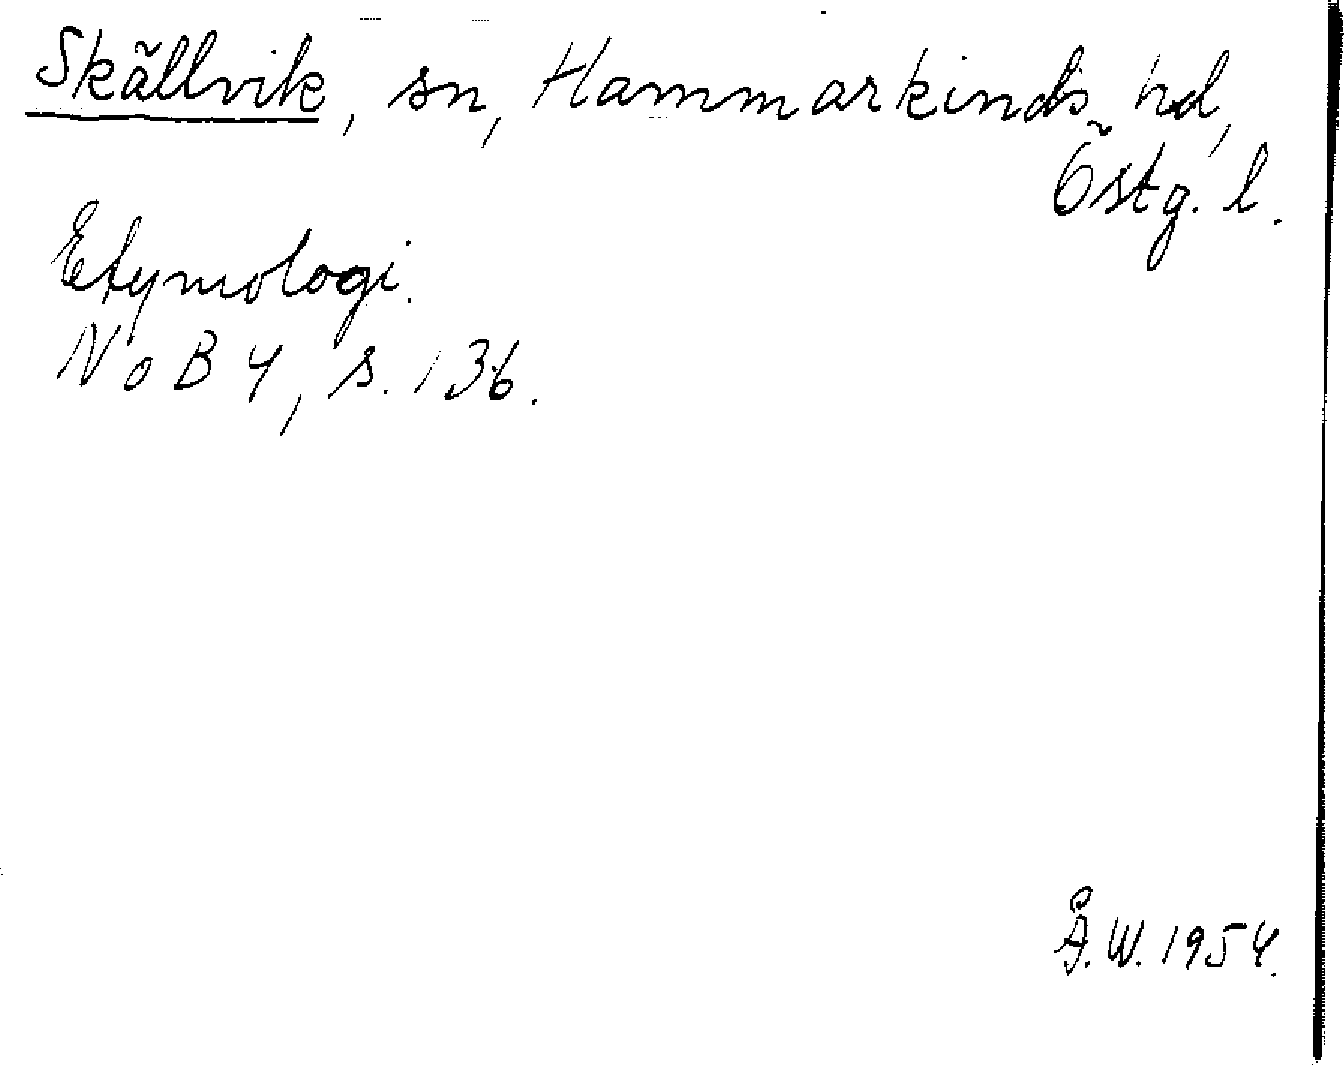 Skällvik, sn, Hammarkinds hd,
Östg. l.
Etymologi.
NoB 4, s. 136.
Å.W. 1954.